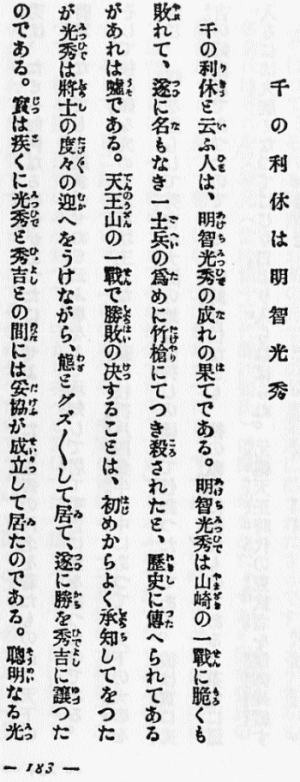 千の利休は明智光秀
千の利休と云ふ人は、明智光秀の成れの果てである。明智光秀は山崎の一戰に脆くも
敗れて、遂に名もなき一士兵の爲めに竹槍にてつき殺されたと、歷史に傳へられてある
があれは噓である。天王山の一戰で勝敗の決することは、初めからよく承知してをつた
が光秀は將士の度々の迎へをうけながら、態とグズ〱して居て、遂に勝を秀吉に讓つた
のである。實は疾くに光秀と秀吉との間には妥協が成立して居たのである。聰明なる光
— 183 —